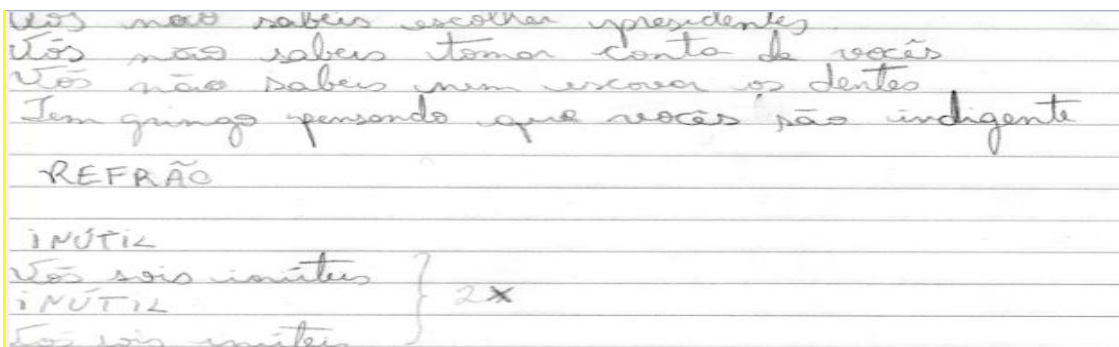 Vós não sabeis escolher presidentes
Vós não sabeis tomar conta de vocês
Vós não sabeis nem escovar os dentes
Tem gringo pensando que vocês são indigente
REFRÃO
INÚTIL
Vós sois inúteis
INÚTIL 2X
Vós sois inúteis